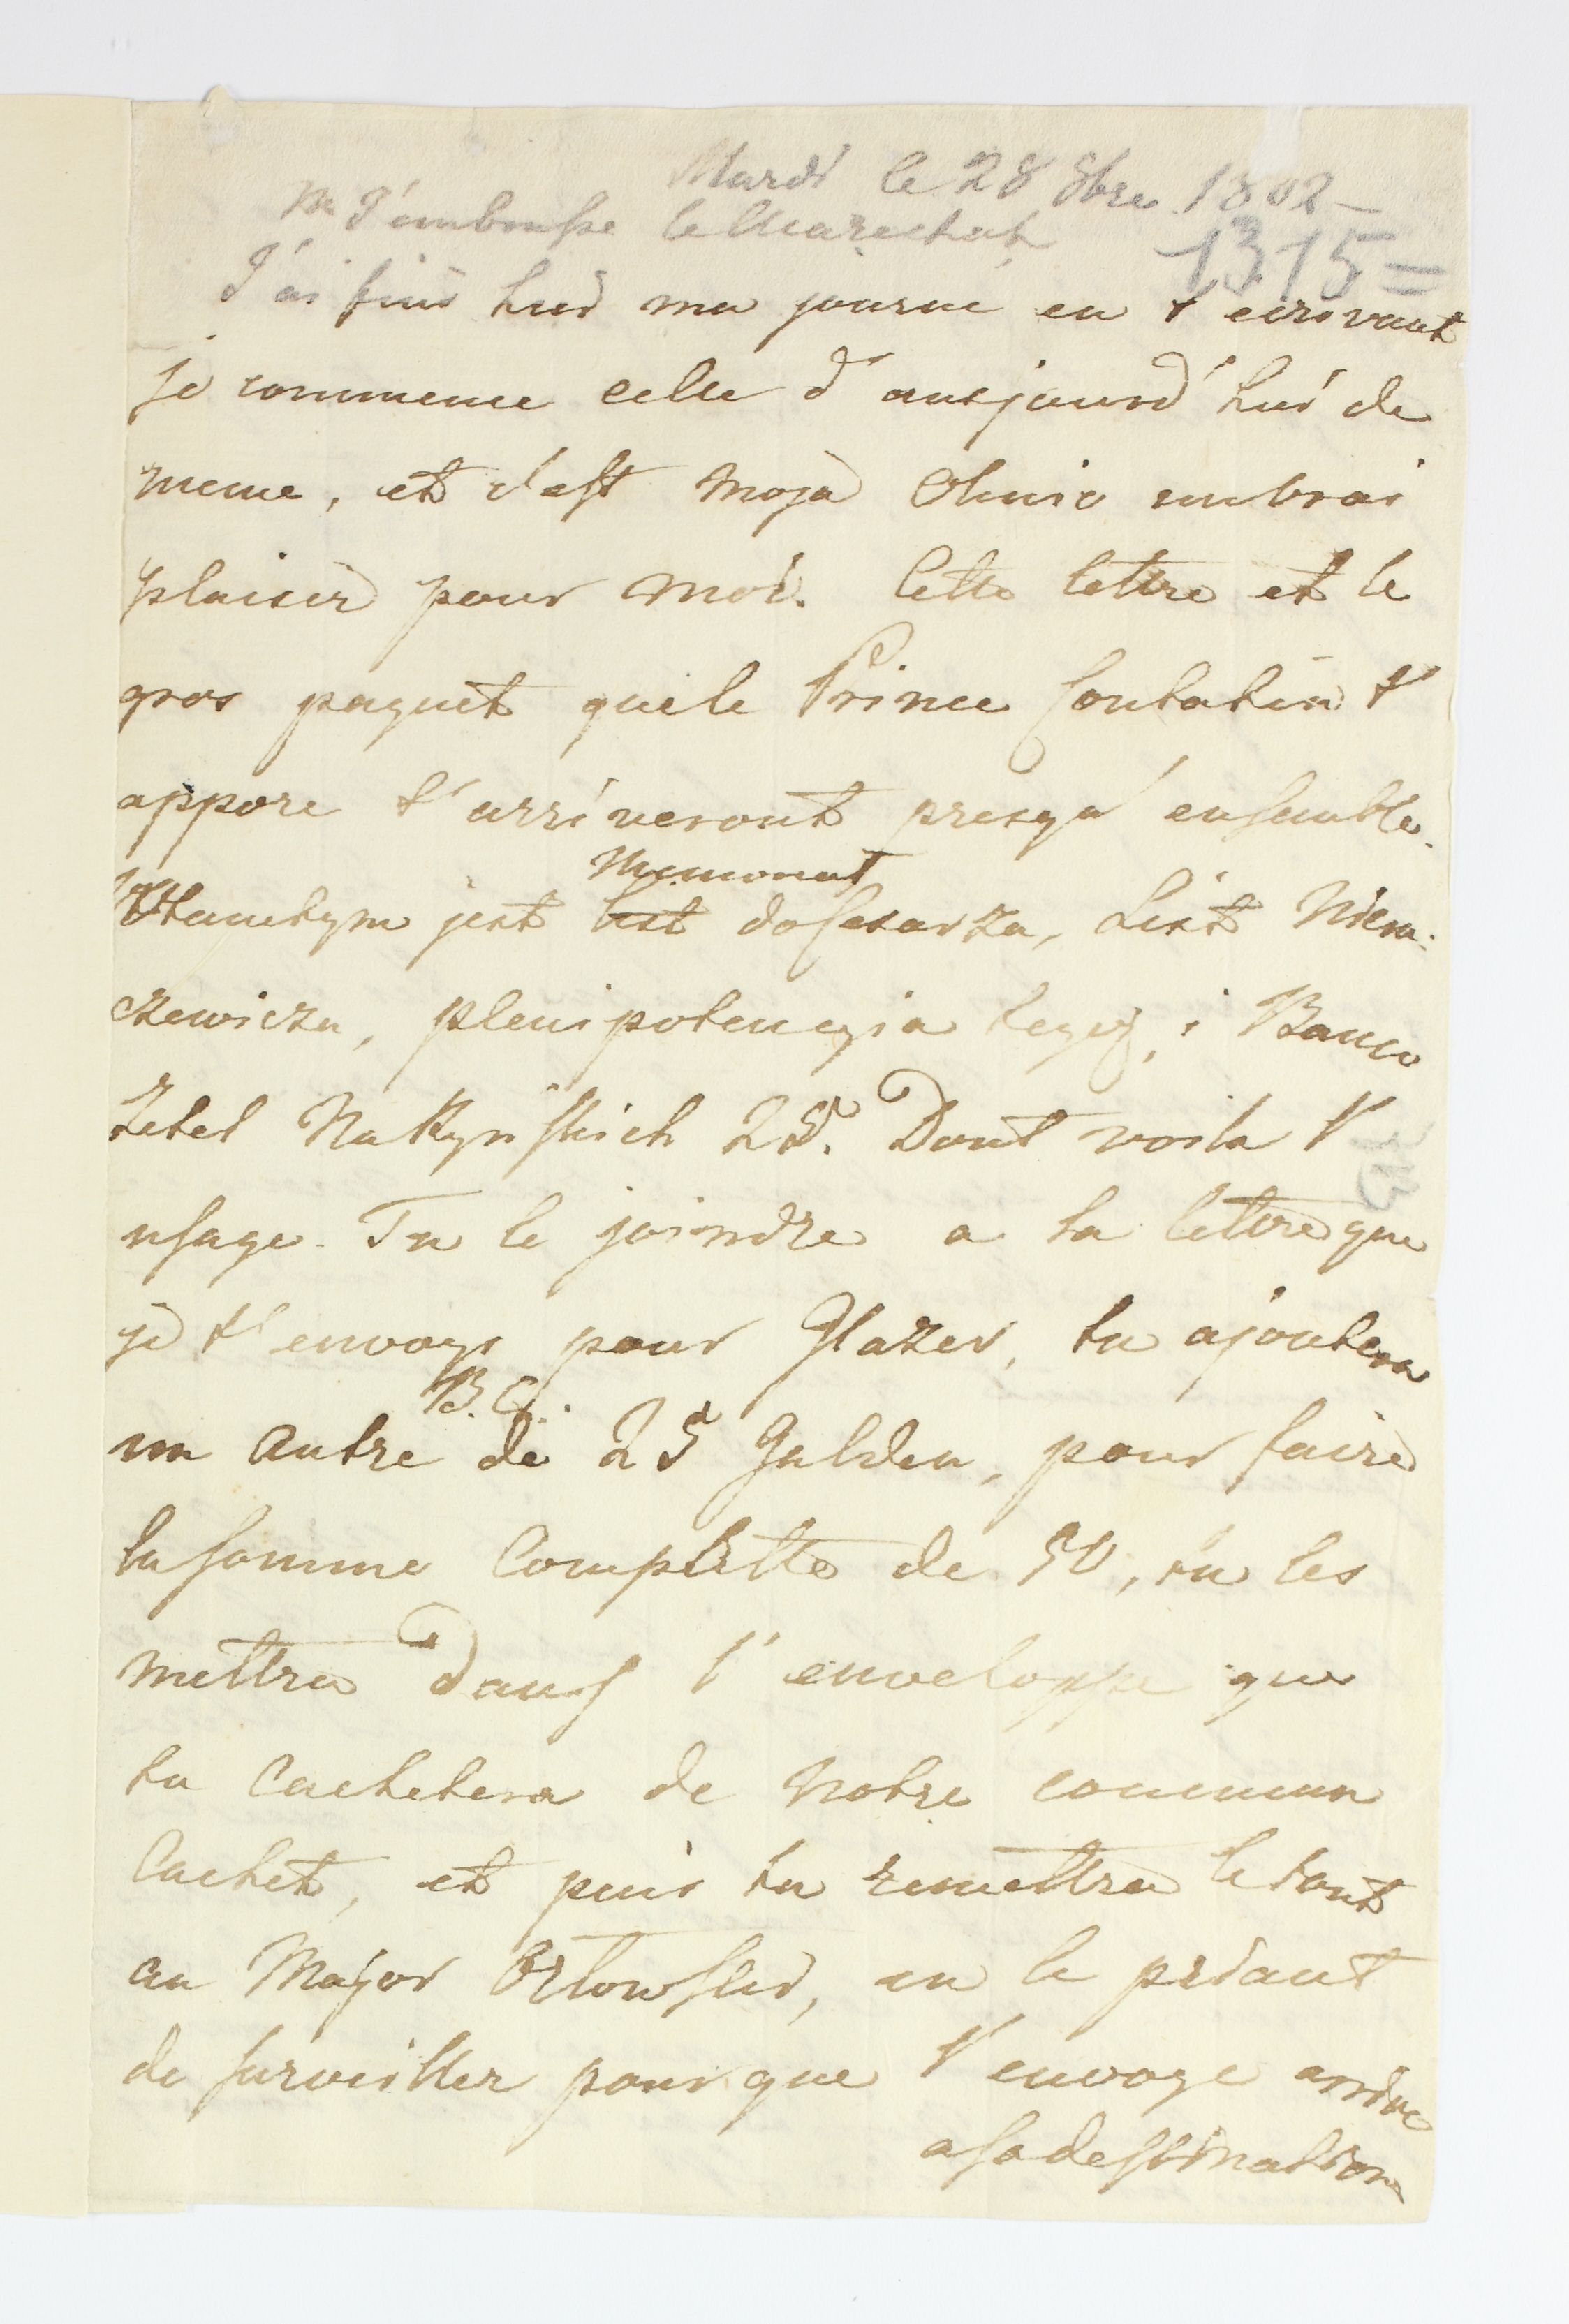 Mardi le 28 8bre 1802 –
M J'embrasse le Marechal
1315 =
J'ai finis hier ma journe en t ecrivant
je commence celle d'ausjourd'hui de
meme, et c'est moja Oluniu un vrai
plaisir pour moi. Cette lettre et le
gros paquet que le Prince t'
appore t'arriveront presqu' ensemble.
W tym jest list Memoriał do Cesarza, List Niem-
czewicza, plenipotencyia tegoż, i Banco
Zetel Na Rynskich 25. Dont voila l'
usage. Tu le joindre a la lettre que
je t'envoye pour Glazer, tu ajoutera
un autre B. C. de 25 Gulden, pour faire
la somme Complette de 50, tu les
mettra dans l'enveloppe que
tu Cachetera de Notre commun
Cachet, et puis tu remettra le tout
au Major Orlowski, en le priant
de surveiller pour que l'envoye arrive
a sa destination